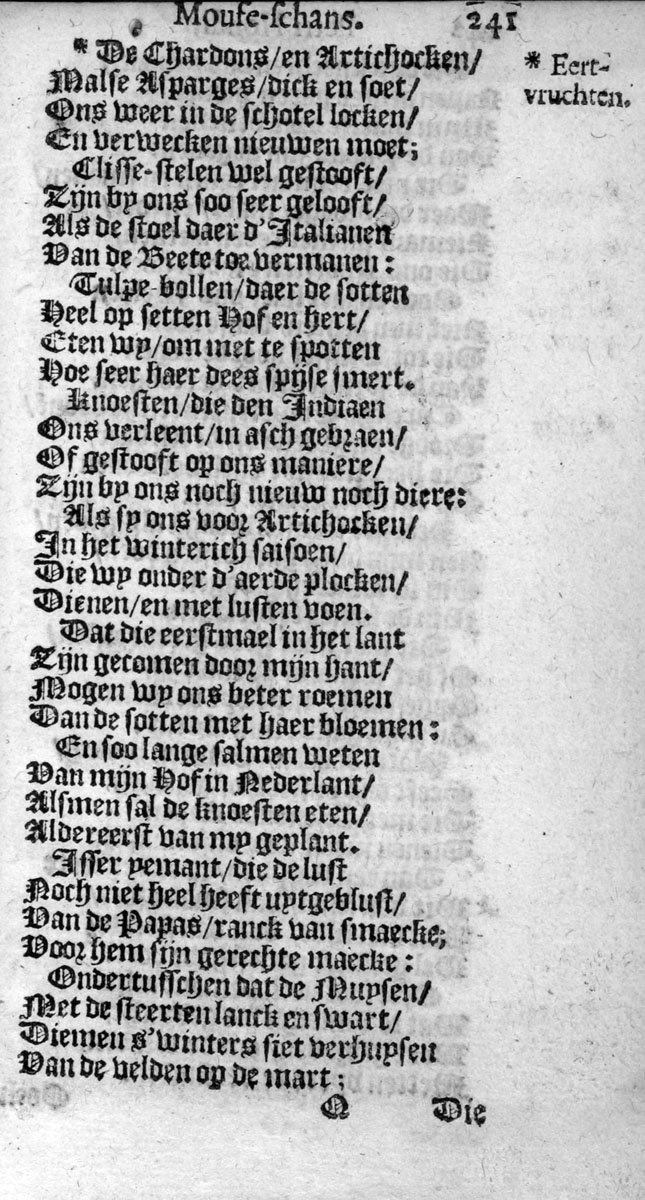 Mouse-schans. 241
* De Chardons/en Artichocken/
* Eert-
vruchten.
Malse Asparges/dick en soet/
Ons weer in de schotel locken/
En verwecken nieuwen moet;
Clisse-stelen wel gestooft/
Zijn by ons soo seer gelooft/
Als de stoel daer d'Italianen
Van de Beete toe vermanen:
Tulpe-bollen/daer de sotten
Heel op setten Hof en hert/
Eten wy/om met te spotten
Hoe seer haer dees spijse smert.
Knoesten/die den Indiaen
Ons verleent/in asch gebraen/
Of gestooft op ons maniere/
Zijn by ons noch nieuw noch diere:
Als sy ons voor Artichocken/
In het winterich saisoen/
Die wy onder d'aerde plocken/
Dienen/en met lusten voen.
Dat die eerstmael in het lant
Zijn gecomen door mijn hant/
Mogen wy ons beter roemen
Dan de sotten met haer bloemen:
En soo lange salmen weten
Van mijn Hof in Nederlant/
Alsmen sal de knoesten eten/
Aldereerst van my geplant.
Isser yemant/die de lust
Noch niet heel heeft uytgeblust/
Van de Papas/ranck van smaecke;
Voor hem sijn gerechte maecke:
Ondertusschen dat de Muysen/
Met de steerten lanck en swart/
Diemen s'winters siet verhuysen
Van de velden op de mart;
Q Die